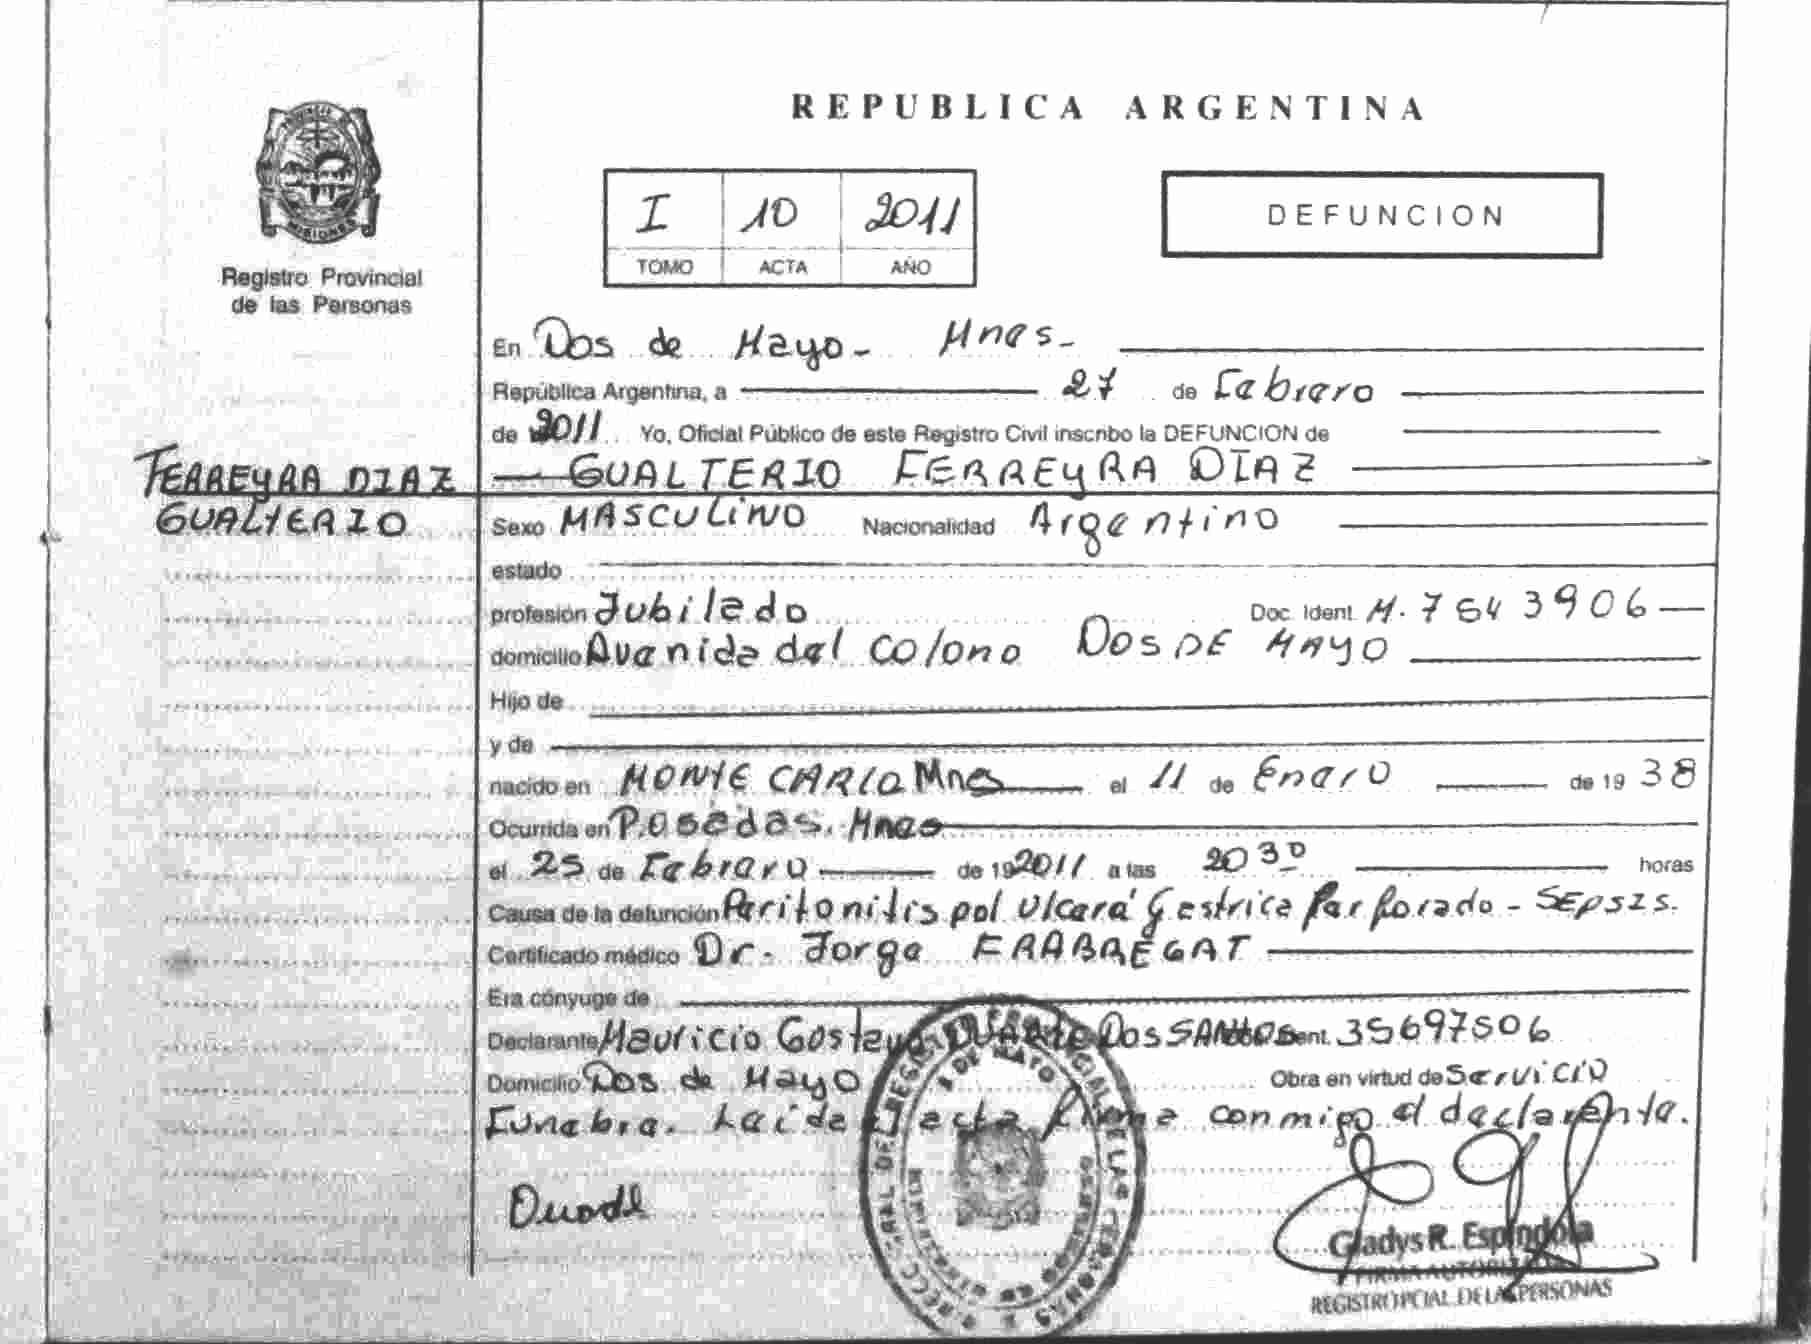 REPUBLICA ARGENTINA
PROVINCIA DE MISIONES
Registro Provincial
de las Personas
I 10 2011
TOMO ACTA AÑO
DEFUNCION
En Dos de Mayo - Mnes -
República Argentina, a 27 de Febrero
de 2011 Yo, Oficial Público de este Registro Civil inscribo la DEFUNCION de
FERREYRA DIAZ
GUALTERIO
GUALTERIO FERREYRA DIAZ
Sexo MASCULINO Nacionalidad Argentino
estado
profesión Jubilado Doc. Ident. M. 7543906
domicilio Avenida del Colono DOS DE MAYO
Hijo de
y de
nacido en MONTE CARLO Mnes el 11 de Enero de 1938
Ocurrida en Posadas. Mnes
el 25 de Febrero de 192011 a las 20 30 horas
Causa de la defunción Peritonitis pol Ulcera Gastrica Perforado - SEPSIS.
Certificado médico Dr. Jorge FRABREGAT
Era cónyuge de
Declarante Mauricio Gostavo DUARTE DOS SANTOS Ident. 35697506
Domicilio Dos de Mayo Obra en virtud de Servicio
Funebre. Leida el acta firma conmigo el declarante.
Gladys R. Espindola
FIRMA AUTORIZADA
REGISTRO PCIAL. DE LAS PERSONAS